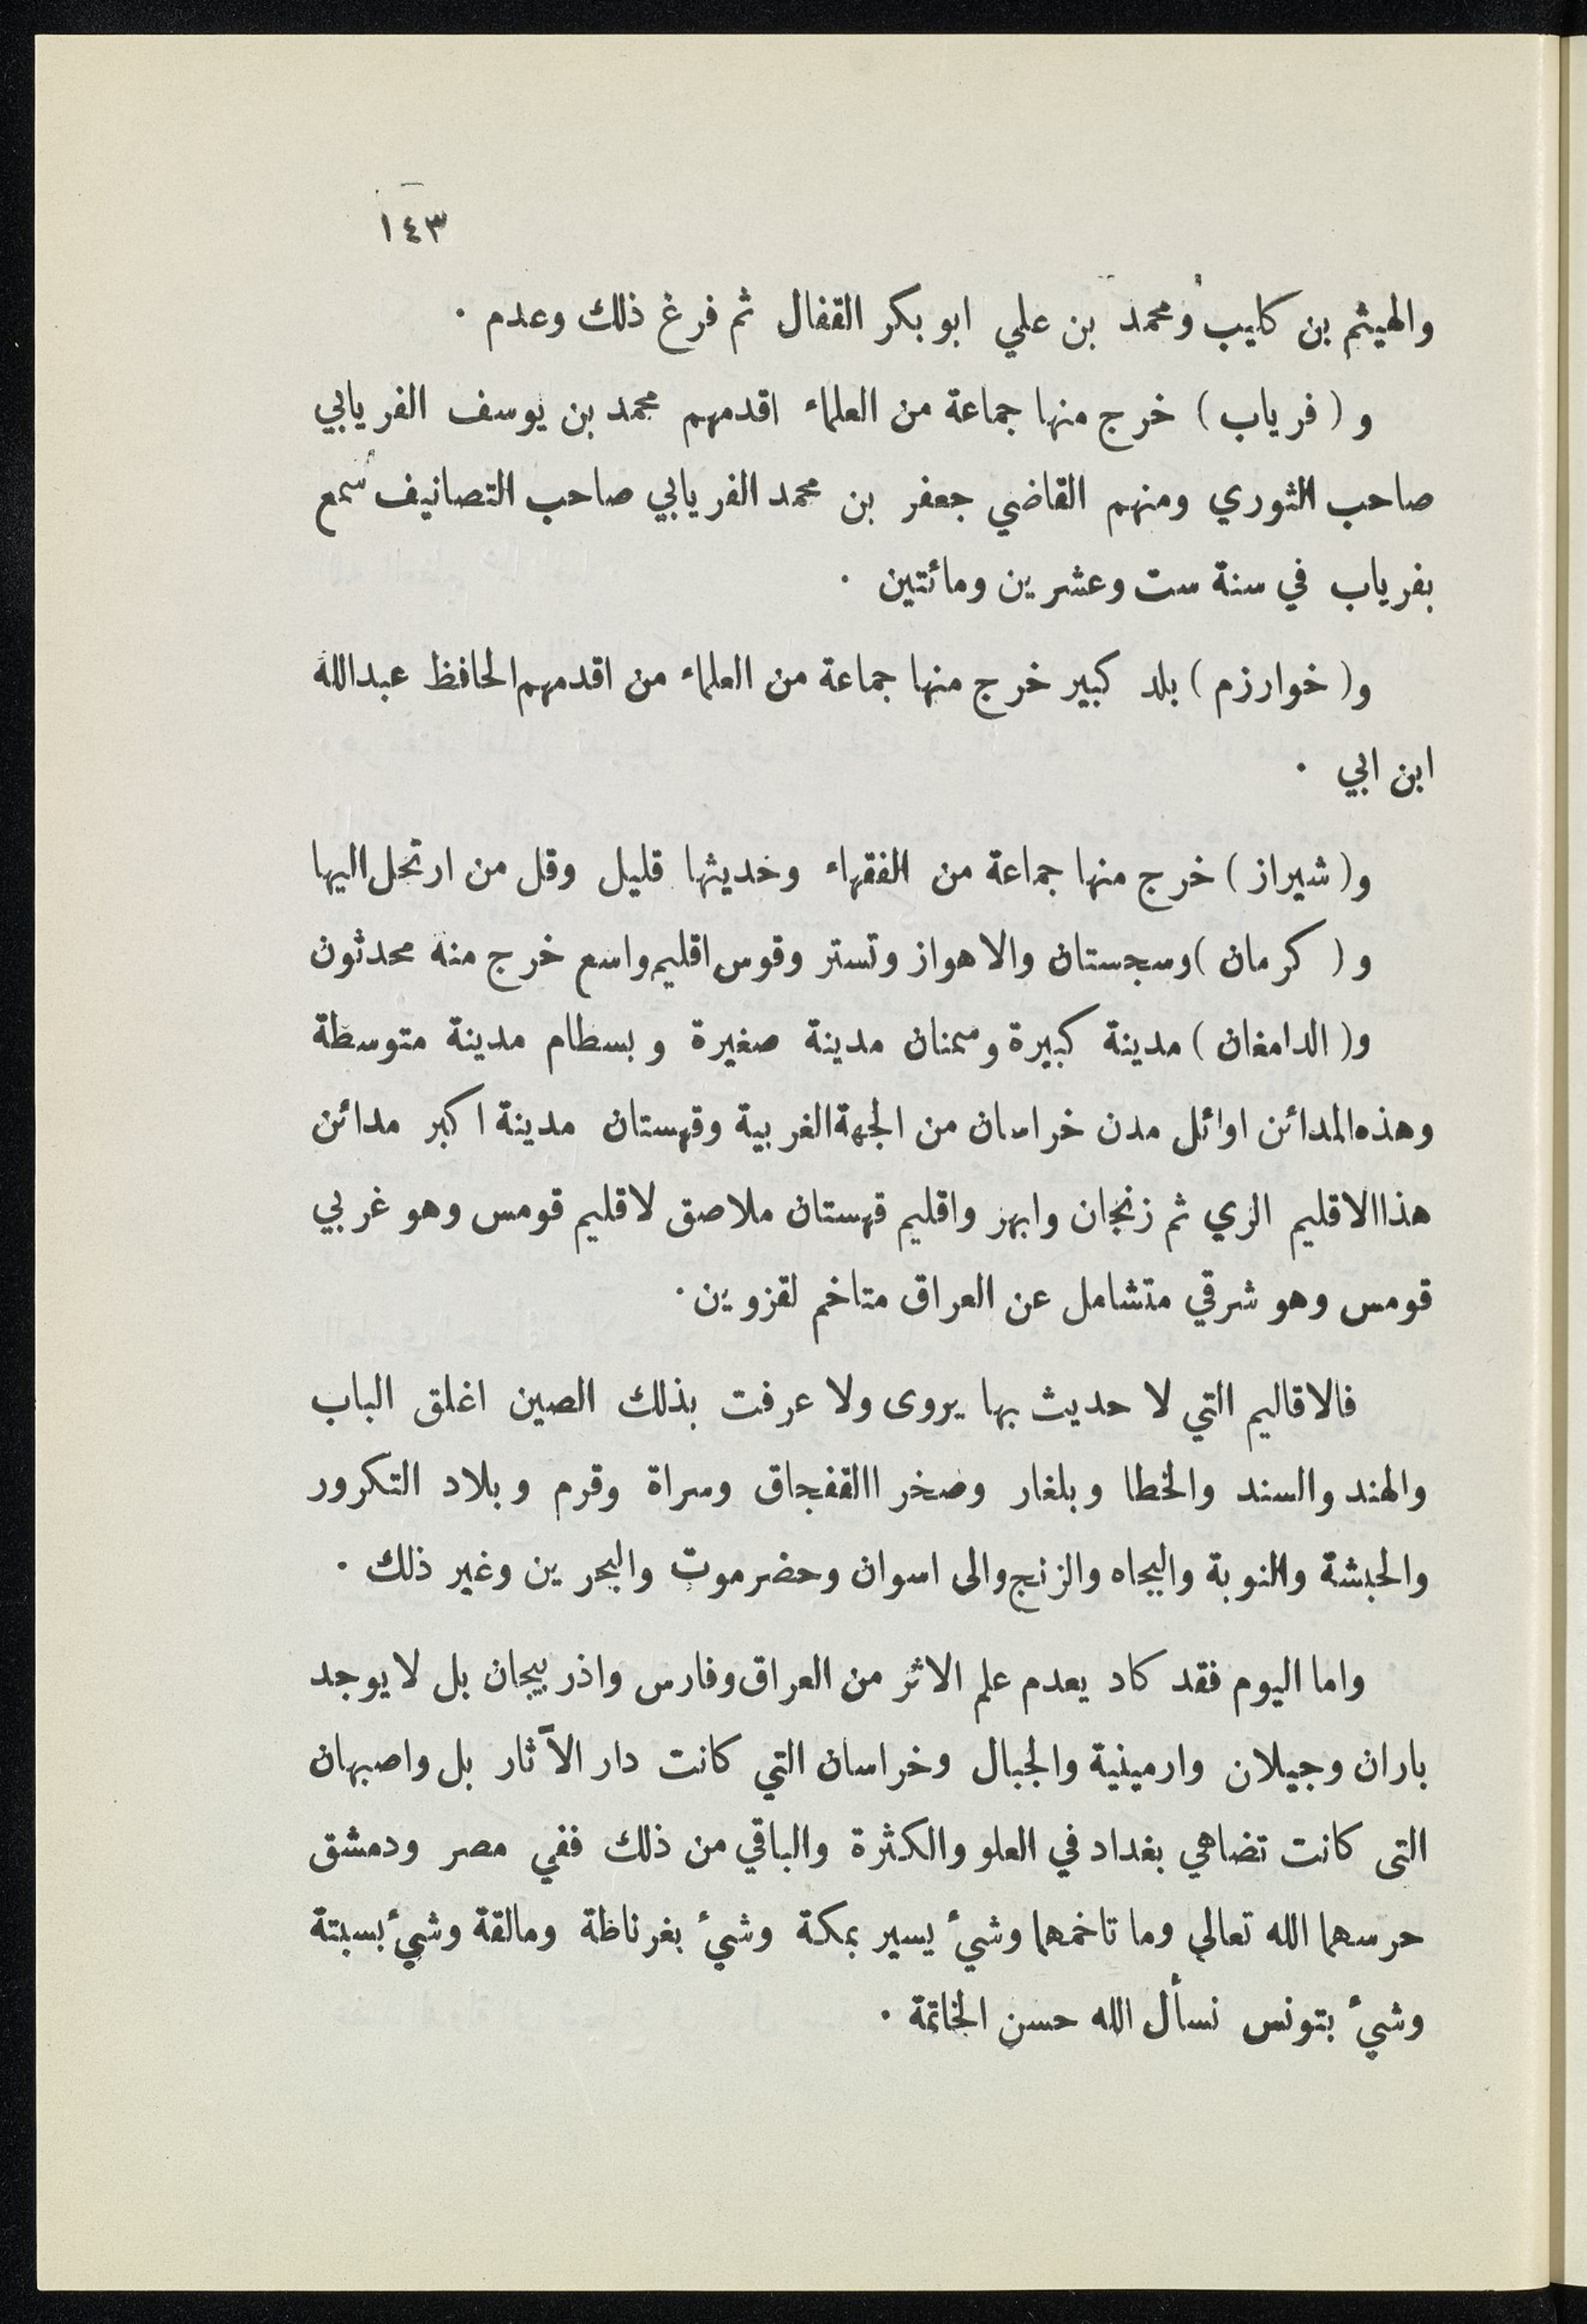 ١٤٣
والهيثم بن كايب ومحمد بن علي ابو بكر القفال ثم فرغ ذلك وعدم ٠
و ( فرياب ) خرج منها جماعة من العلماء اقدمهم محمد بن يوسف الفريابي
صاحب الثوري ومنهم القاضي جعفر بن محمد الفريابي صاحب التصانيف سمع
بفرياب في سنة ست وعشرين ومائتين ٠
و( خوارزم ) بلد كبير خرج منها جماعة من العلماء من اقدمهم الحافظ عبدالله
ابن ابي ٠
و( شيراز ) خرج منها جماعة من الفقهاء وخديثها قليل وقل من ارتحل اليها
و ( كرمان )وسجستان والاهواز وتستر وقوس اقليم واسع خرج منه محدثون
و( الدامغان ) مدينة كبيرة وسمنان مدينة صغيرة وبسطام مدينة متوسطة
وهذه المدائن اوائل مدن خراسان من الجهة الغربية وقهستان مدينة اكبر مدائن
هذا الاقليم الري ثم زنجان وابهر واقليم قهستان ملاصق لاقليم قومس وهو غربي
قومس وهو شرقي متشامل عن العراق متاخم لقزوين ٠
فالاقاليم التي لا حديث بها يروى ولا عرفت بذلك الصين اغلق الباب
والهند والسند والخطا وبلغار وصخر االقفجاق وسراة وقرم وبلاد التكرور
والحبشة والنوبة والبجاه والزنج والى اسوان وحضرموت والبحرين وغير ذلك ٠
واما اليوم فقد كاد يعدم علم الاثر من العراق وفارس واذربيجان بل لا يوجد
باران وجيلان وارمينية والجبال وخراسان التي كانت دار الآثار بل واصبهان
التى كانت تضاهي بغداد في العلو والكثرة والباقي من ذلك ففي مصر ودمشق
حرسهما الله تعالي وما تاخمهما وشيء يسير بمكة وشيء بغرناظة ومالقة وشيء بسبتة
وشيء بتونس نسأل الله حسن الخاتمة ٠